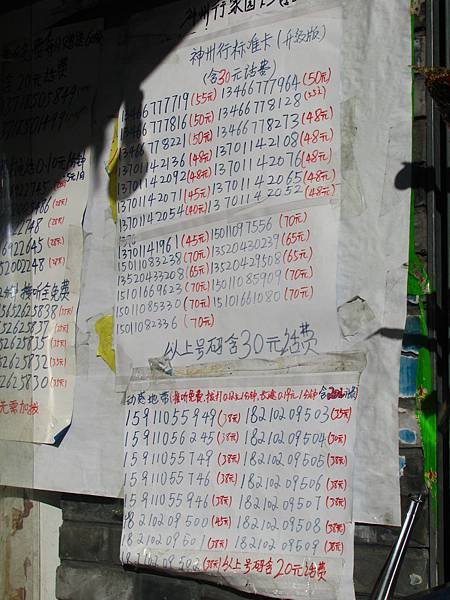 神州行标准卡(升级版)
(含30元话费)
13466777719(55元) 13466777964(50元)
13466777816(50元) 13466778128
13466778221(50元) 13466778273(48元)
13701142136(48元) 13701142108(48元)
13701142092(48元) 13701142076(48元)
13701142071(45元) 13701142065(48元)
13701142054(40元) 13701142052(48元)
13701141961(45元) 15011097556(70元)
15011083238(70元) 13520430239(65元)
13520433208(65元) 13520429508(65元)
15101669623(70元) 15011085909(70元)
15011085330(70元) 15101661080(70元)
15011082336(70元)
以上号码含30元话费
动感地带(接听免费,拨打0.12元1分钟,长途0.19元1分钟 含20元话费)
15911055949(38元) 18210209503(35元)
15911056245(38元) 18210209504(30元)
15911055749(38元) 18210209505(38元)
15911055746(38元) 18210209506(38元)
15911055946(38元) 18210209507(38元)
18210209500(45元) 18210209508(38元)
18210209501(38元) 18210209509(38元)
18210209502(38元) 以上号码含20元话费
20元话费
接听免费
3652625838
52625837
52625835
52625832
52625830
无需加拨